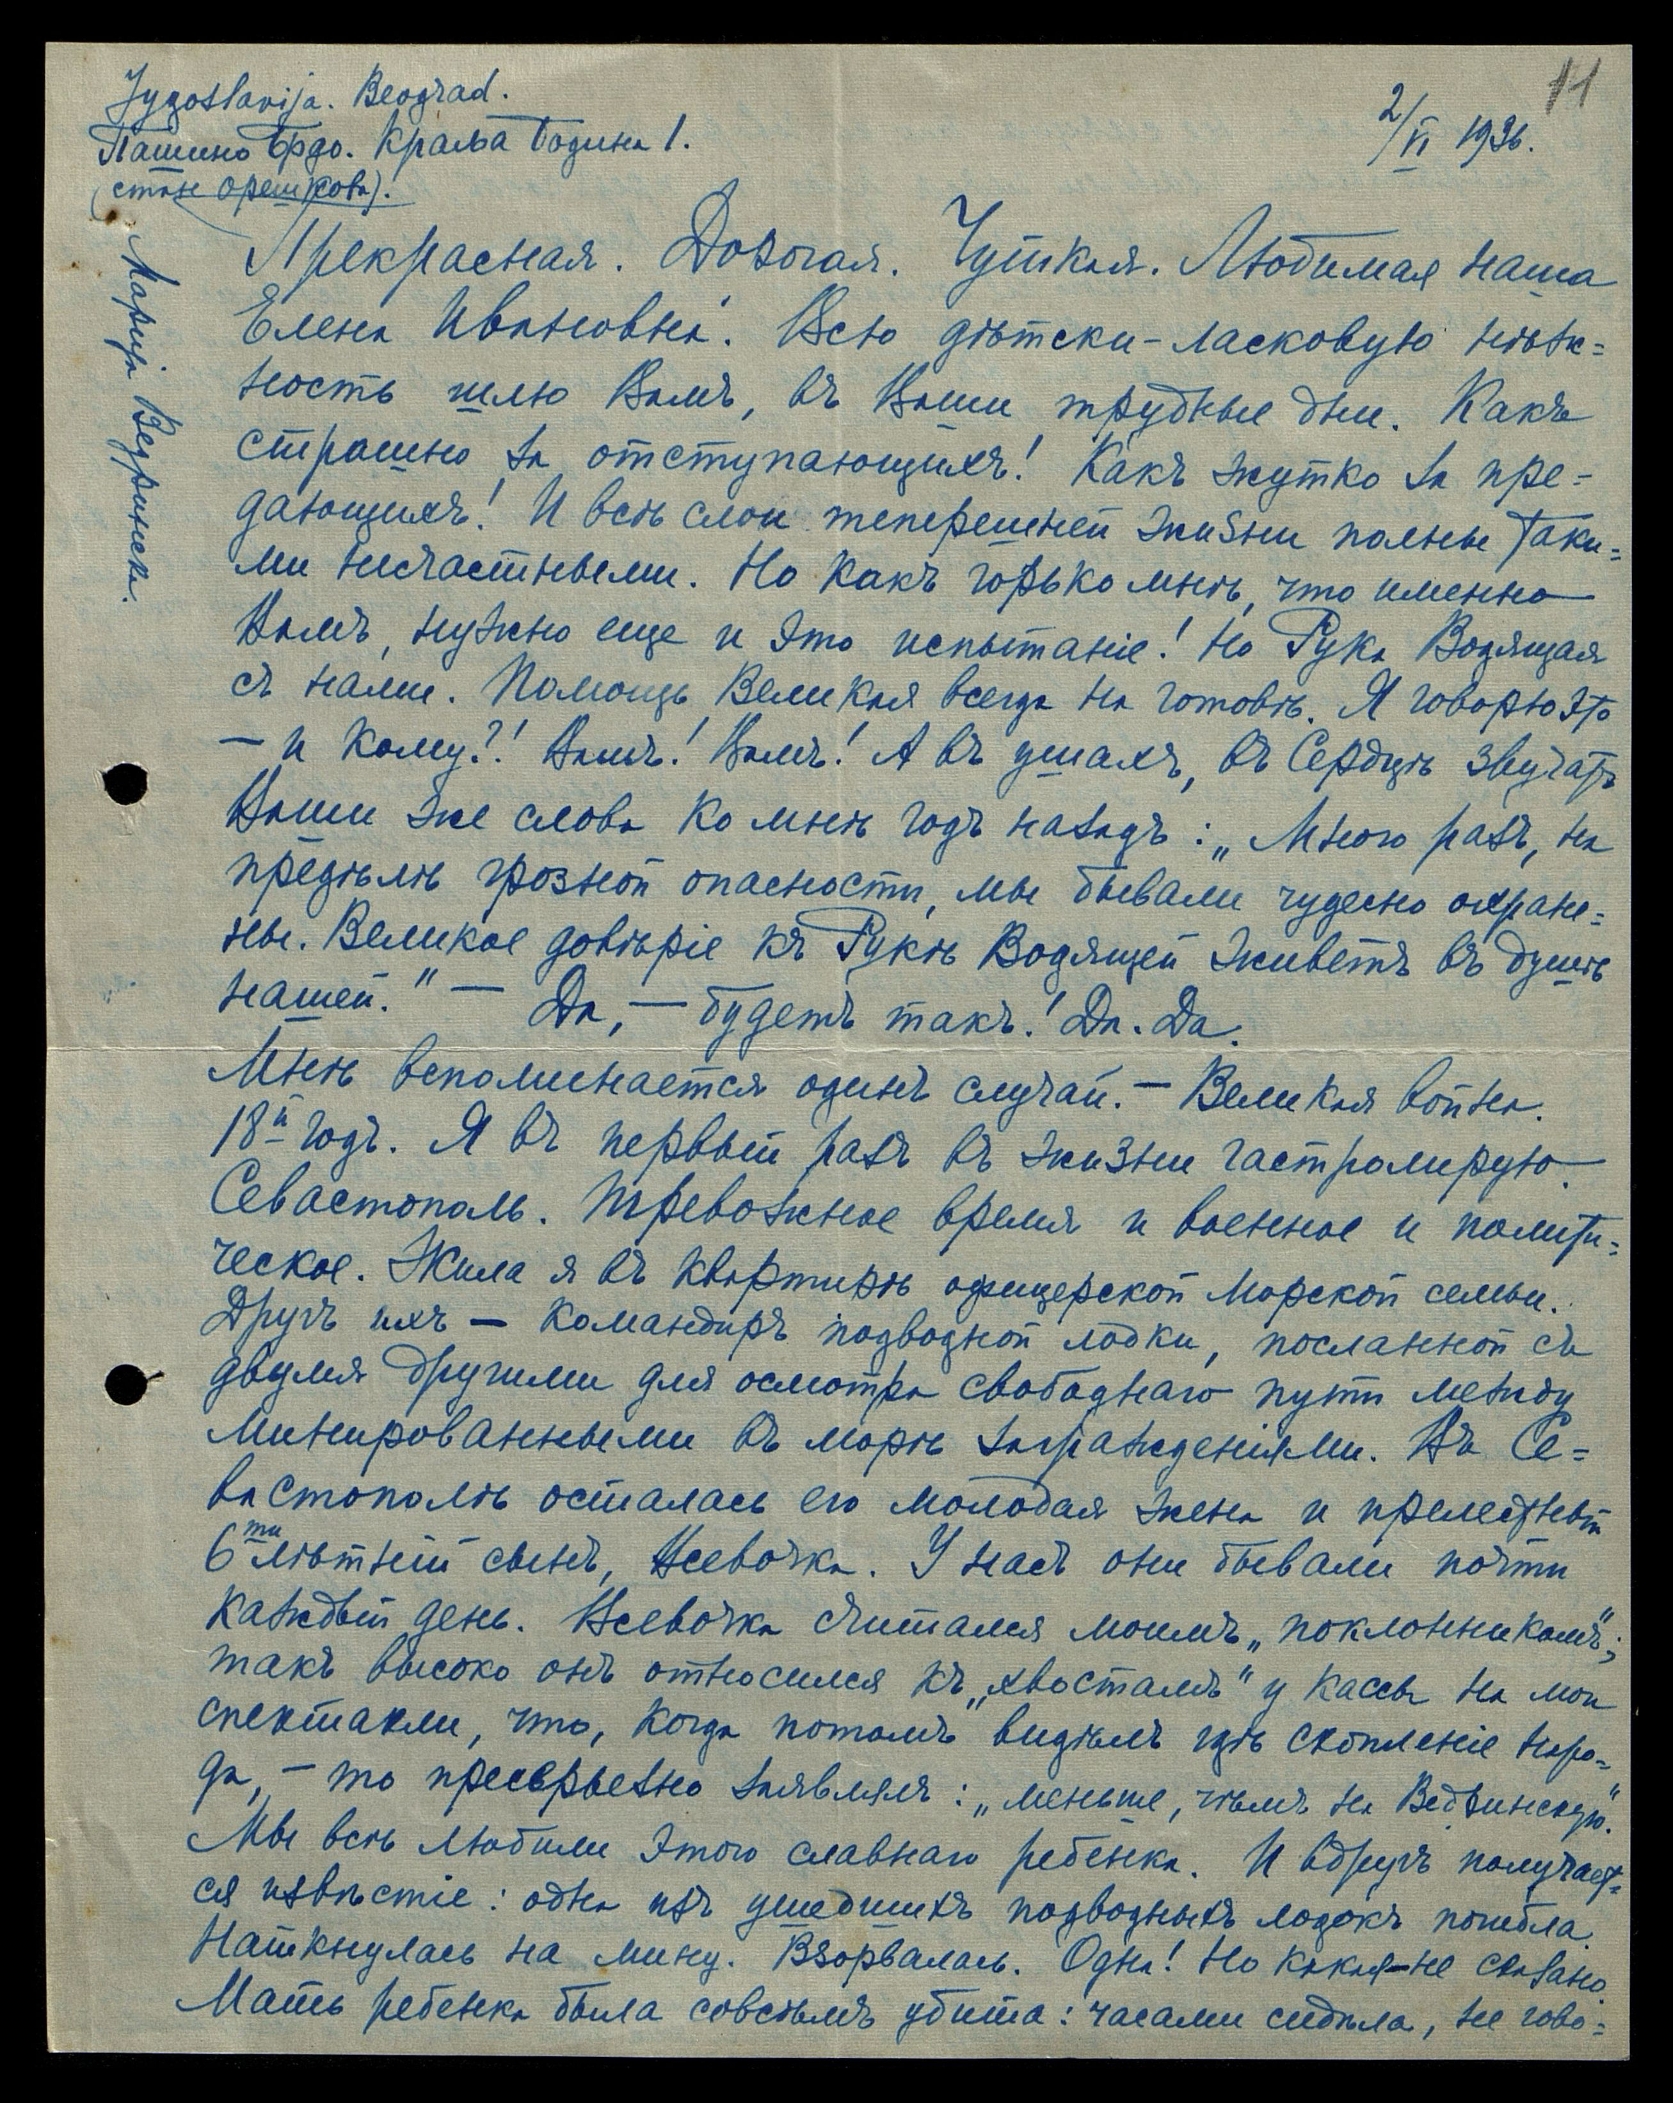 Jugoslavija. Beograd.
Пашино Брдо. Краља Бодина 1.
(стан Орешкова).
2/VI 1936.
11
Марија Ведринска.
Прекрасная. Дорогая. Чуткая. Любимая наша
Елена Ивановна. Всю дѣтски-ласковую нѣж=
ность шлю Вамъ, въ Ваши трудные дни. Какъ
страшно за отступающихъ! Какъ жутко за пре=
дающихъ! И всѣ слои теперешней жизни полны таки=
ми несчастными. Но какъ горько мнѣ, что именно
Вамъ, нужно еще и это испытаніе! Но Рука Водящая
съ нами. Помощь Великая всегда на готовѣ. Я говорю это
— и кому?! Вамъ! Вамъ! А въ ушахъ, въ Сердцѣ звучатъ
Ваши же слова ко мнѣ годъ назадъ: „Много разъ, на
предѣлѣ грозной опасности, мы бывали чудесно охране=
ны. Великое довѣріе къ Рукѣ Водящей живетъ въ душѣ
нашей." — Да, — будетъ такъ! Да. Да.
Мнѣ вспоминается одинъ случай. — Великая война.
18й годъ. Я въ первый разъ въ жизни гастролирую.
Севастополь. Тревожное время и военное и полити=
ческое. Жила я въ квартирѣ офицерской морской семьи.
Другъ ихъ — командиръ подводной лодки, посланной съ
двумя другими для осмотра свободнаго пути между
минированными въ морѣ загражденіями. Въ Се=
вастополѣ осталась его молодая жена и прелестный
6ти лѣтній сынъ, Всевочка. У насъ они бывали почти
каждый день. Всевочка считался моимъ „поклонникомъ";
такъ высоко онъ относился къ „хвостамъ" у кассы на мои
спектакли, что, когда потомъ видѣлъ гдѣ скопленіе наро=
да, — то пресерьезно заявлялъ: „меньше, чѣмъ на Ведринскую".
Мы всѣ любили этого славнаго ребенка. И вдругъ получает=
ся извѣстіе: одна изъ ушедшихъ подводныхъ лодокъ погибла.
Наткнулась на мину. Взорвалась. Одна! Но какая — не сказано.
Мать ребенка была совсѣмъ убита: часами сидѣла, не гово=